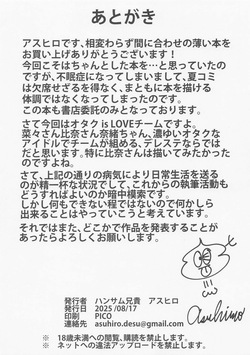 あとがき
アスヒロです、相変わらず間に合わせの薄い本を
お買い上げありがとうございます！
今回こそはちゃんとした本を…と思っていたの
ですが、不眠症になってしまいまして、夏コミ
は欠席せざるを得なく、まともに本を描ける
体調ではなくなってしまったのです。
この本も書店委託のみとなっております。
さて今回はオタク is LOVEチームですよ。
菜々さん比奈さん奈緒ちゃん、濃ゆいオタクな
アイドルでチームが組める、デレステならでは
だと思います。特に比奈さんは描いてみたかった
のですよね。
さて、上記の通りの病気により日常生活を送る
のが精一杯な状況でして、これからの執筆活動も
どうすればよいのか暗中模索です。
しかし何もできない程ではないので何かしら
出来ることはやっていこうと考えています。
それではまた、どこかで作品を発表することが
あったらよろしくお願いします。
発行者 ハンサム兄貴 アスヒロ
発行日 2025/08/17
印刷 PICO
連絡先 asuhiro.desu@gmail.com
asuhiro
※ 18歳未満への閲覧、購読を禁止します。
※ ネットへの違法アップロードを禁止します。